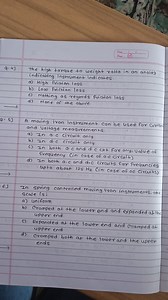 Q.4) The high torque to weight ratio in an analog
indicating instrument indicates
a) High friction loss
b) Low friction loss
c) Nothing as regards friction loss
d) None of the above
Q.5) A moving iron instrument can be used for current
and voltage measurements
a) In a.c circuit only
b) In d.c circuit only
c) In both a.c and d.c ckt for any value of
frequency (in case of a.c circuit)
d) In both a.c and d.c circuits for frequencies
upto about 125 Hz (in case of a.c circuits)
In spring controlled moving iron instruments, the
scale is
a) Uniform
b) Cramped at the lower end and expanded at the
upper end
c) Expanded at the lower end and cramped at
upper end
d) Cramped both at the lower and the upper
ends